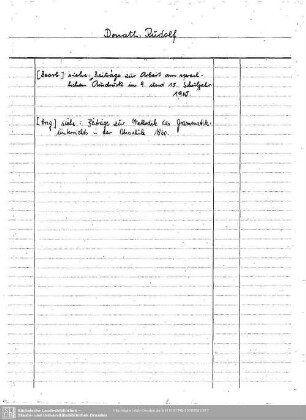 Donath, Rudolf
[Bearb.] siehe: Beiträge zur Arbeit am sprach-
lichen Ausdruck im 9. und 10. Schuljahr
[Hrg.] siehe: Beiträge zur Methodik des Grammatik-
unterrichts - der Oberstufe 1960.
Sächsische Landesbibliothek -
Staats- und Universitätsbibliothek Dresden